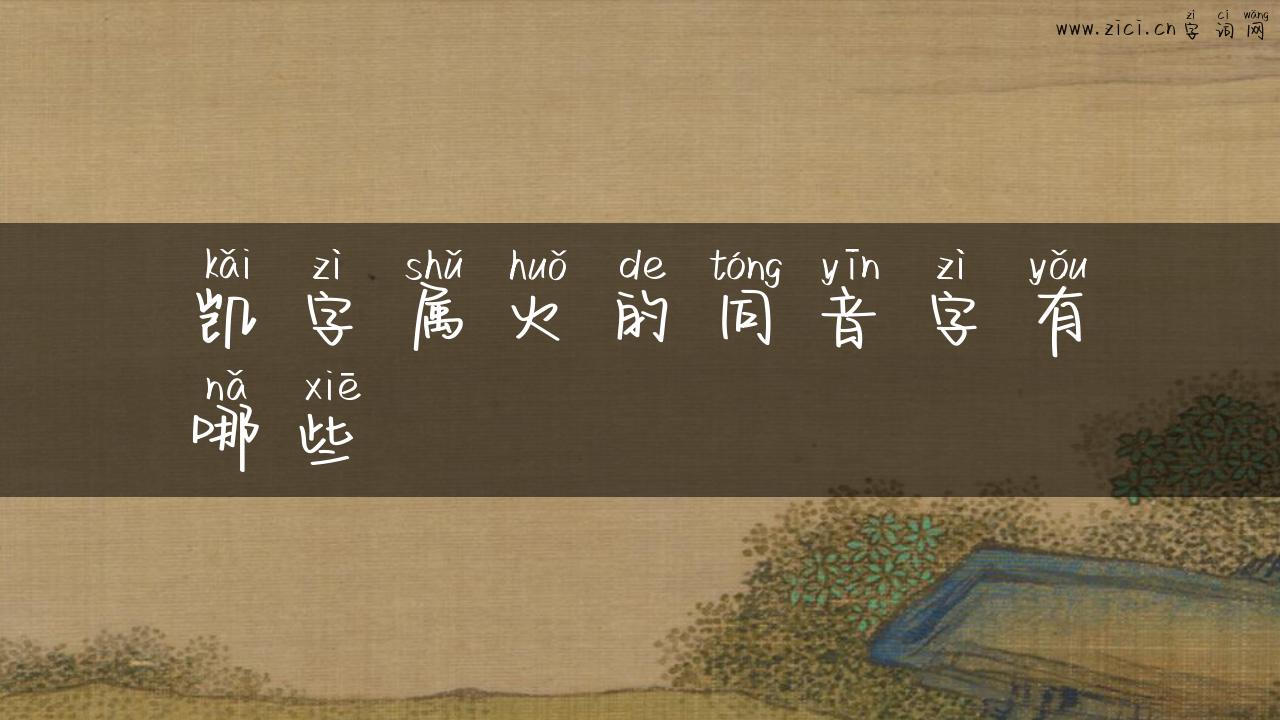 zì cí wǎng
www.zici.cn 字 词 网
kǎi zì shǔ huǒ de tóng yīn zì yǒu
凯 字 属 火 的 同 音 字 有
nǎ xiē
哪 些